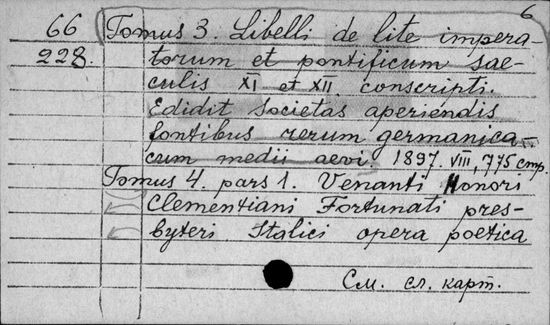 6
66 Tomus 3. Libelli de lite impera-
228. torum et pontificum sae-
culis XI et XII conscripti.
Edidit Societas aperiendis
fontibus rerum germanica-
cum medii aevi. 1897. VIII, 775 стр.
Tomus 4. pars 1. Venanti Honori
Clementiani Fortunati pres-
byteri Italici opera poetica
См. сл. карт.